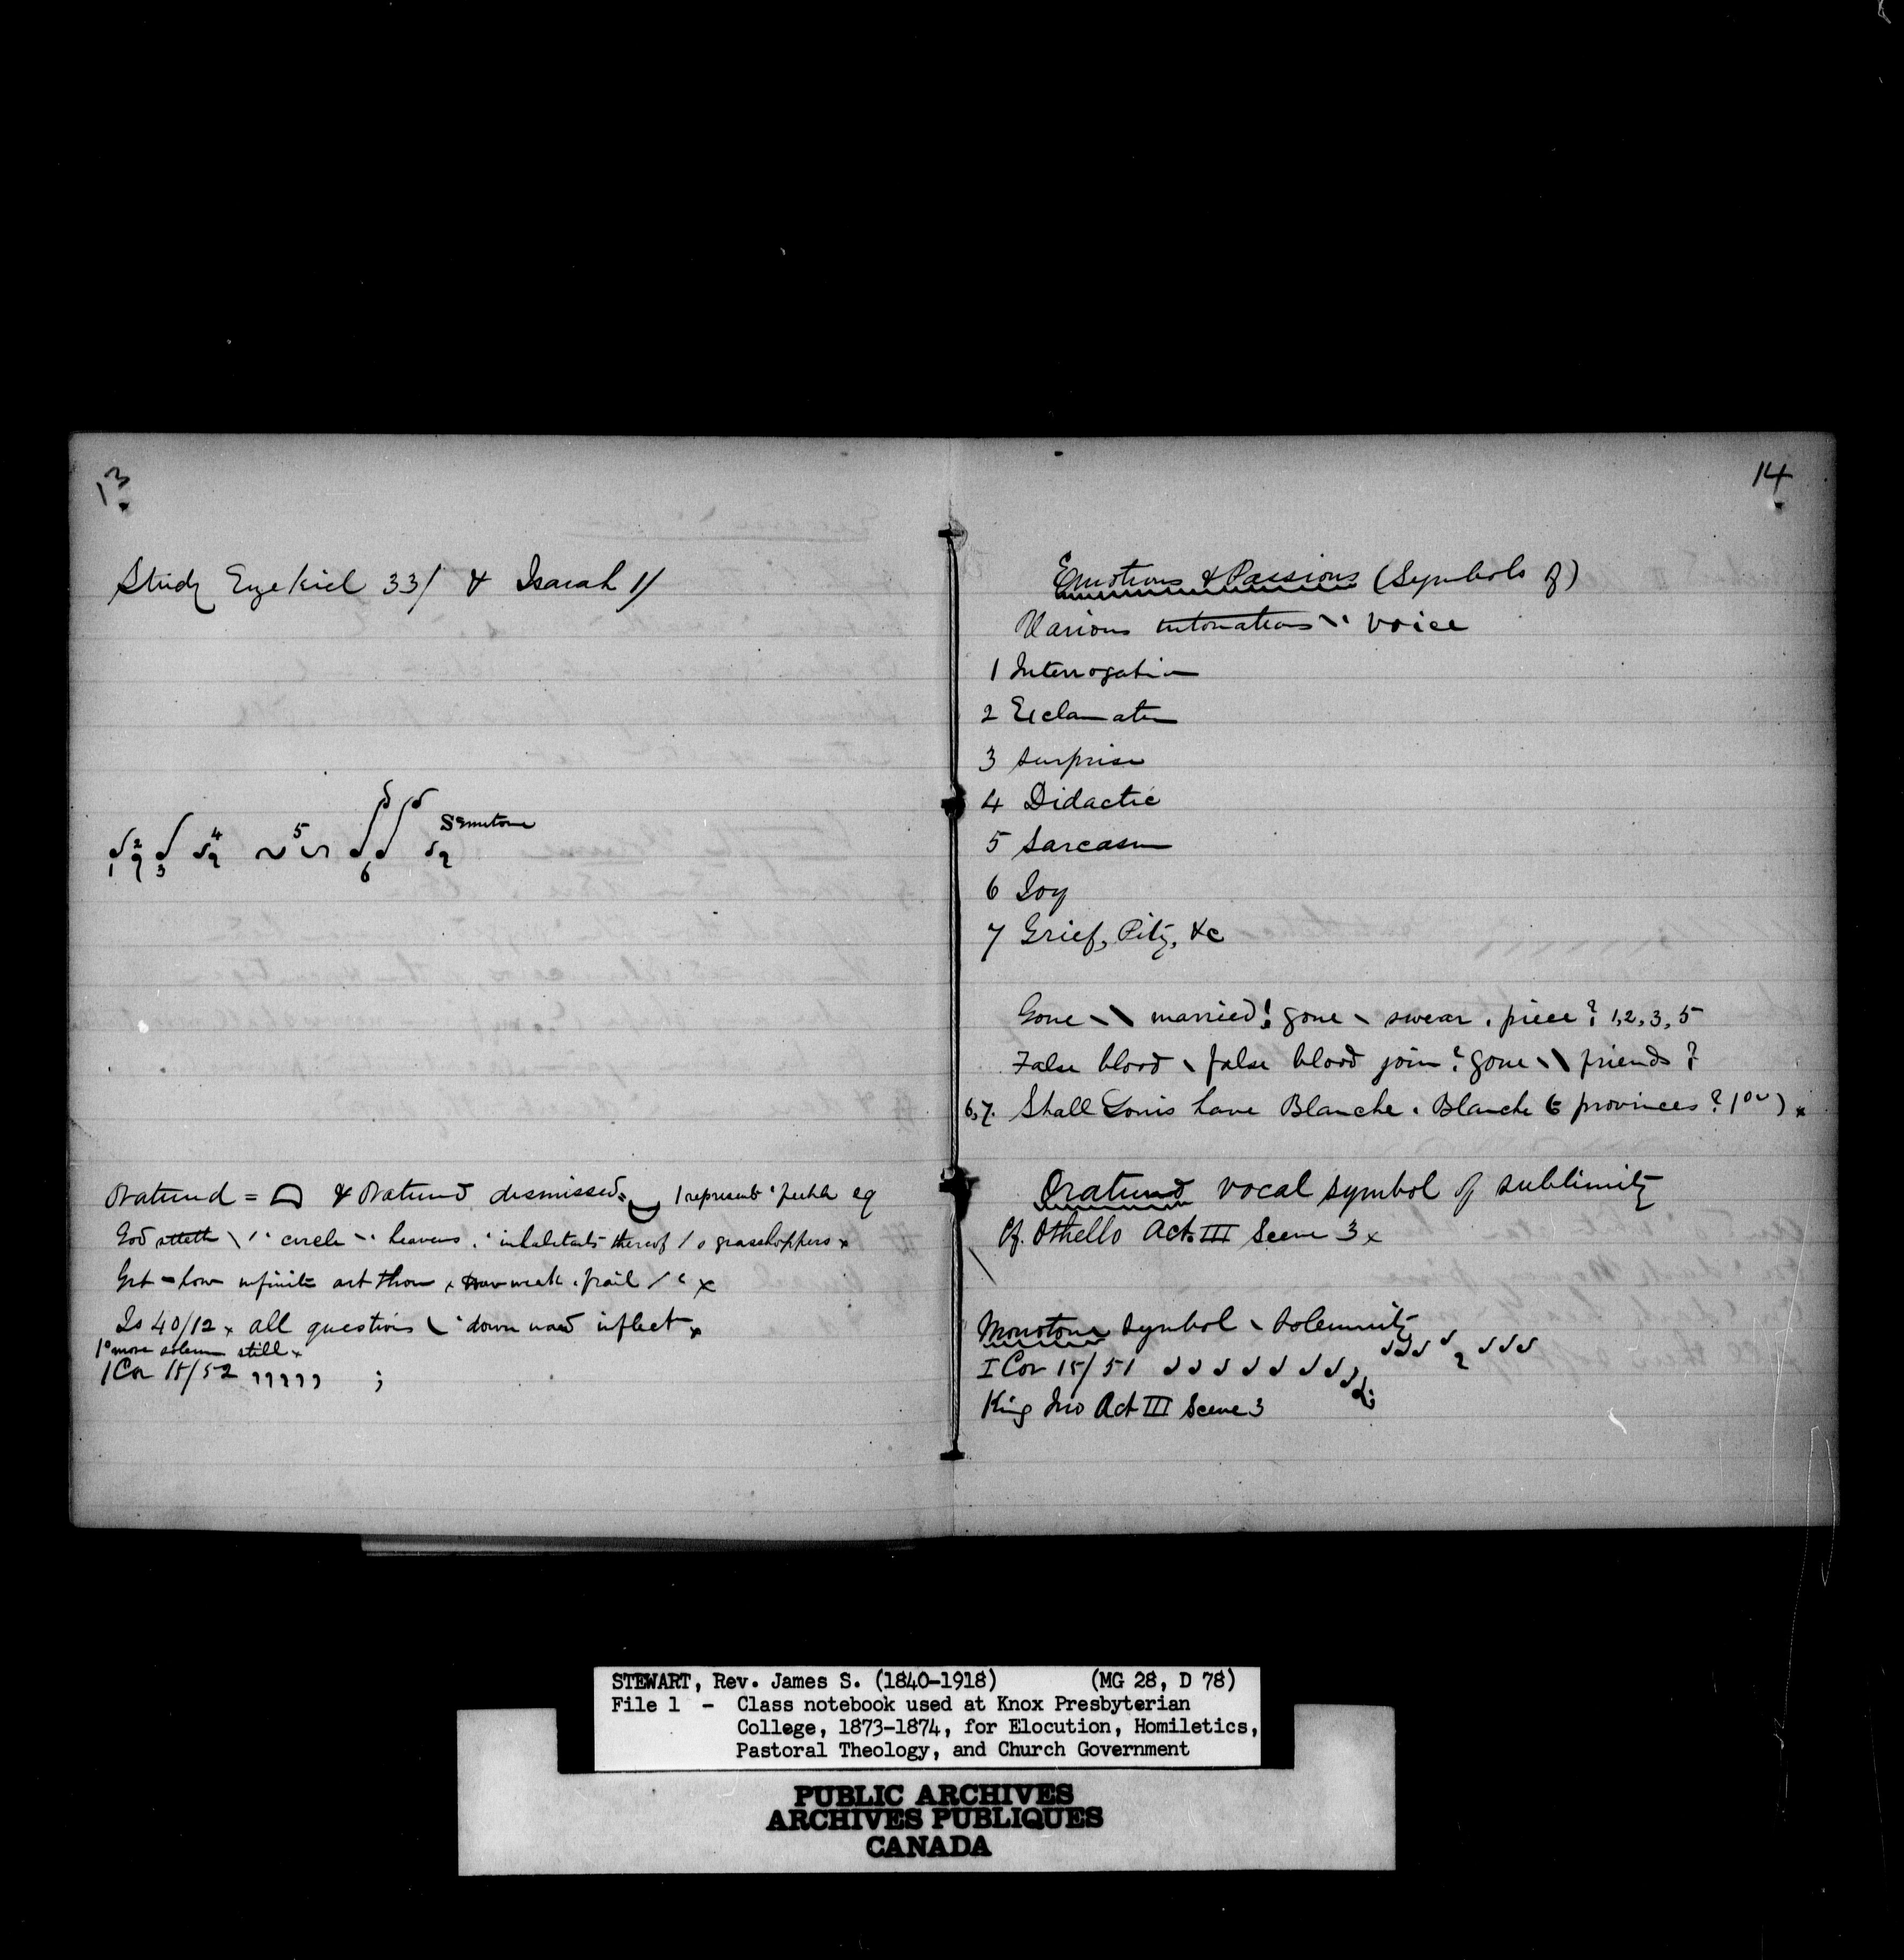 13
Study Ezekiel 33/ & Isaiah 1/
2 4 5 Semitone
1 3 6
Oratund = & Oratund dismissed = 1 represent feeble eg
God sitteth \ / circle \ heavens, inhabitants thereof / o grasshoppers x
Grt - how infinite art thou x how weak . frail / c x
Is 40/12 x all questions \ down ward inflect x
1° more solemn still x
1 Cor 15/52 , , , , , ;
14
Emotions & Passions (Symbols of)
Various intonations \ voice
1 Interrogation
2 Exclamation
3 surprise
4 Didactic
5 Sarcasm
6 Joy
7 Grief, Pity, &c
Gone \ \ married! gone \ swear . piece? 1,2,3,5
False blood \ false blood join? gone \ \ friends?
6,7. Shall Louis have Blanche . Blanche provinces?
Oratund vocal symbol of sublimity
Cf. Othello Act III Scene 3 x
Monotone symbol \ Solemnity
I Cor 15/51
King Jno Act III Scene 3
STEWART, Rev. James S. (1840-1918) (MG 28, D 78)
File 1 - Class notebook used at Knox Presbyterian
College, 1873-1874, for Elocution, Homiletics,
Pastoral Theology, and Church Government
PUBLIC ARCHIVES
ARCHIVES PUBLIQUES
CANADA